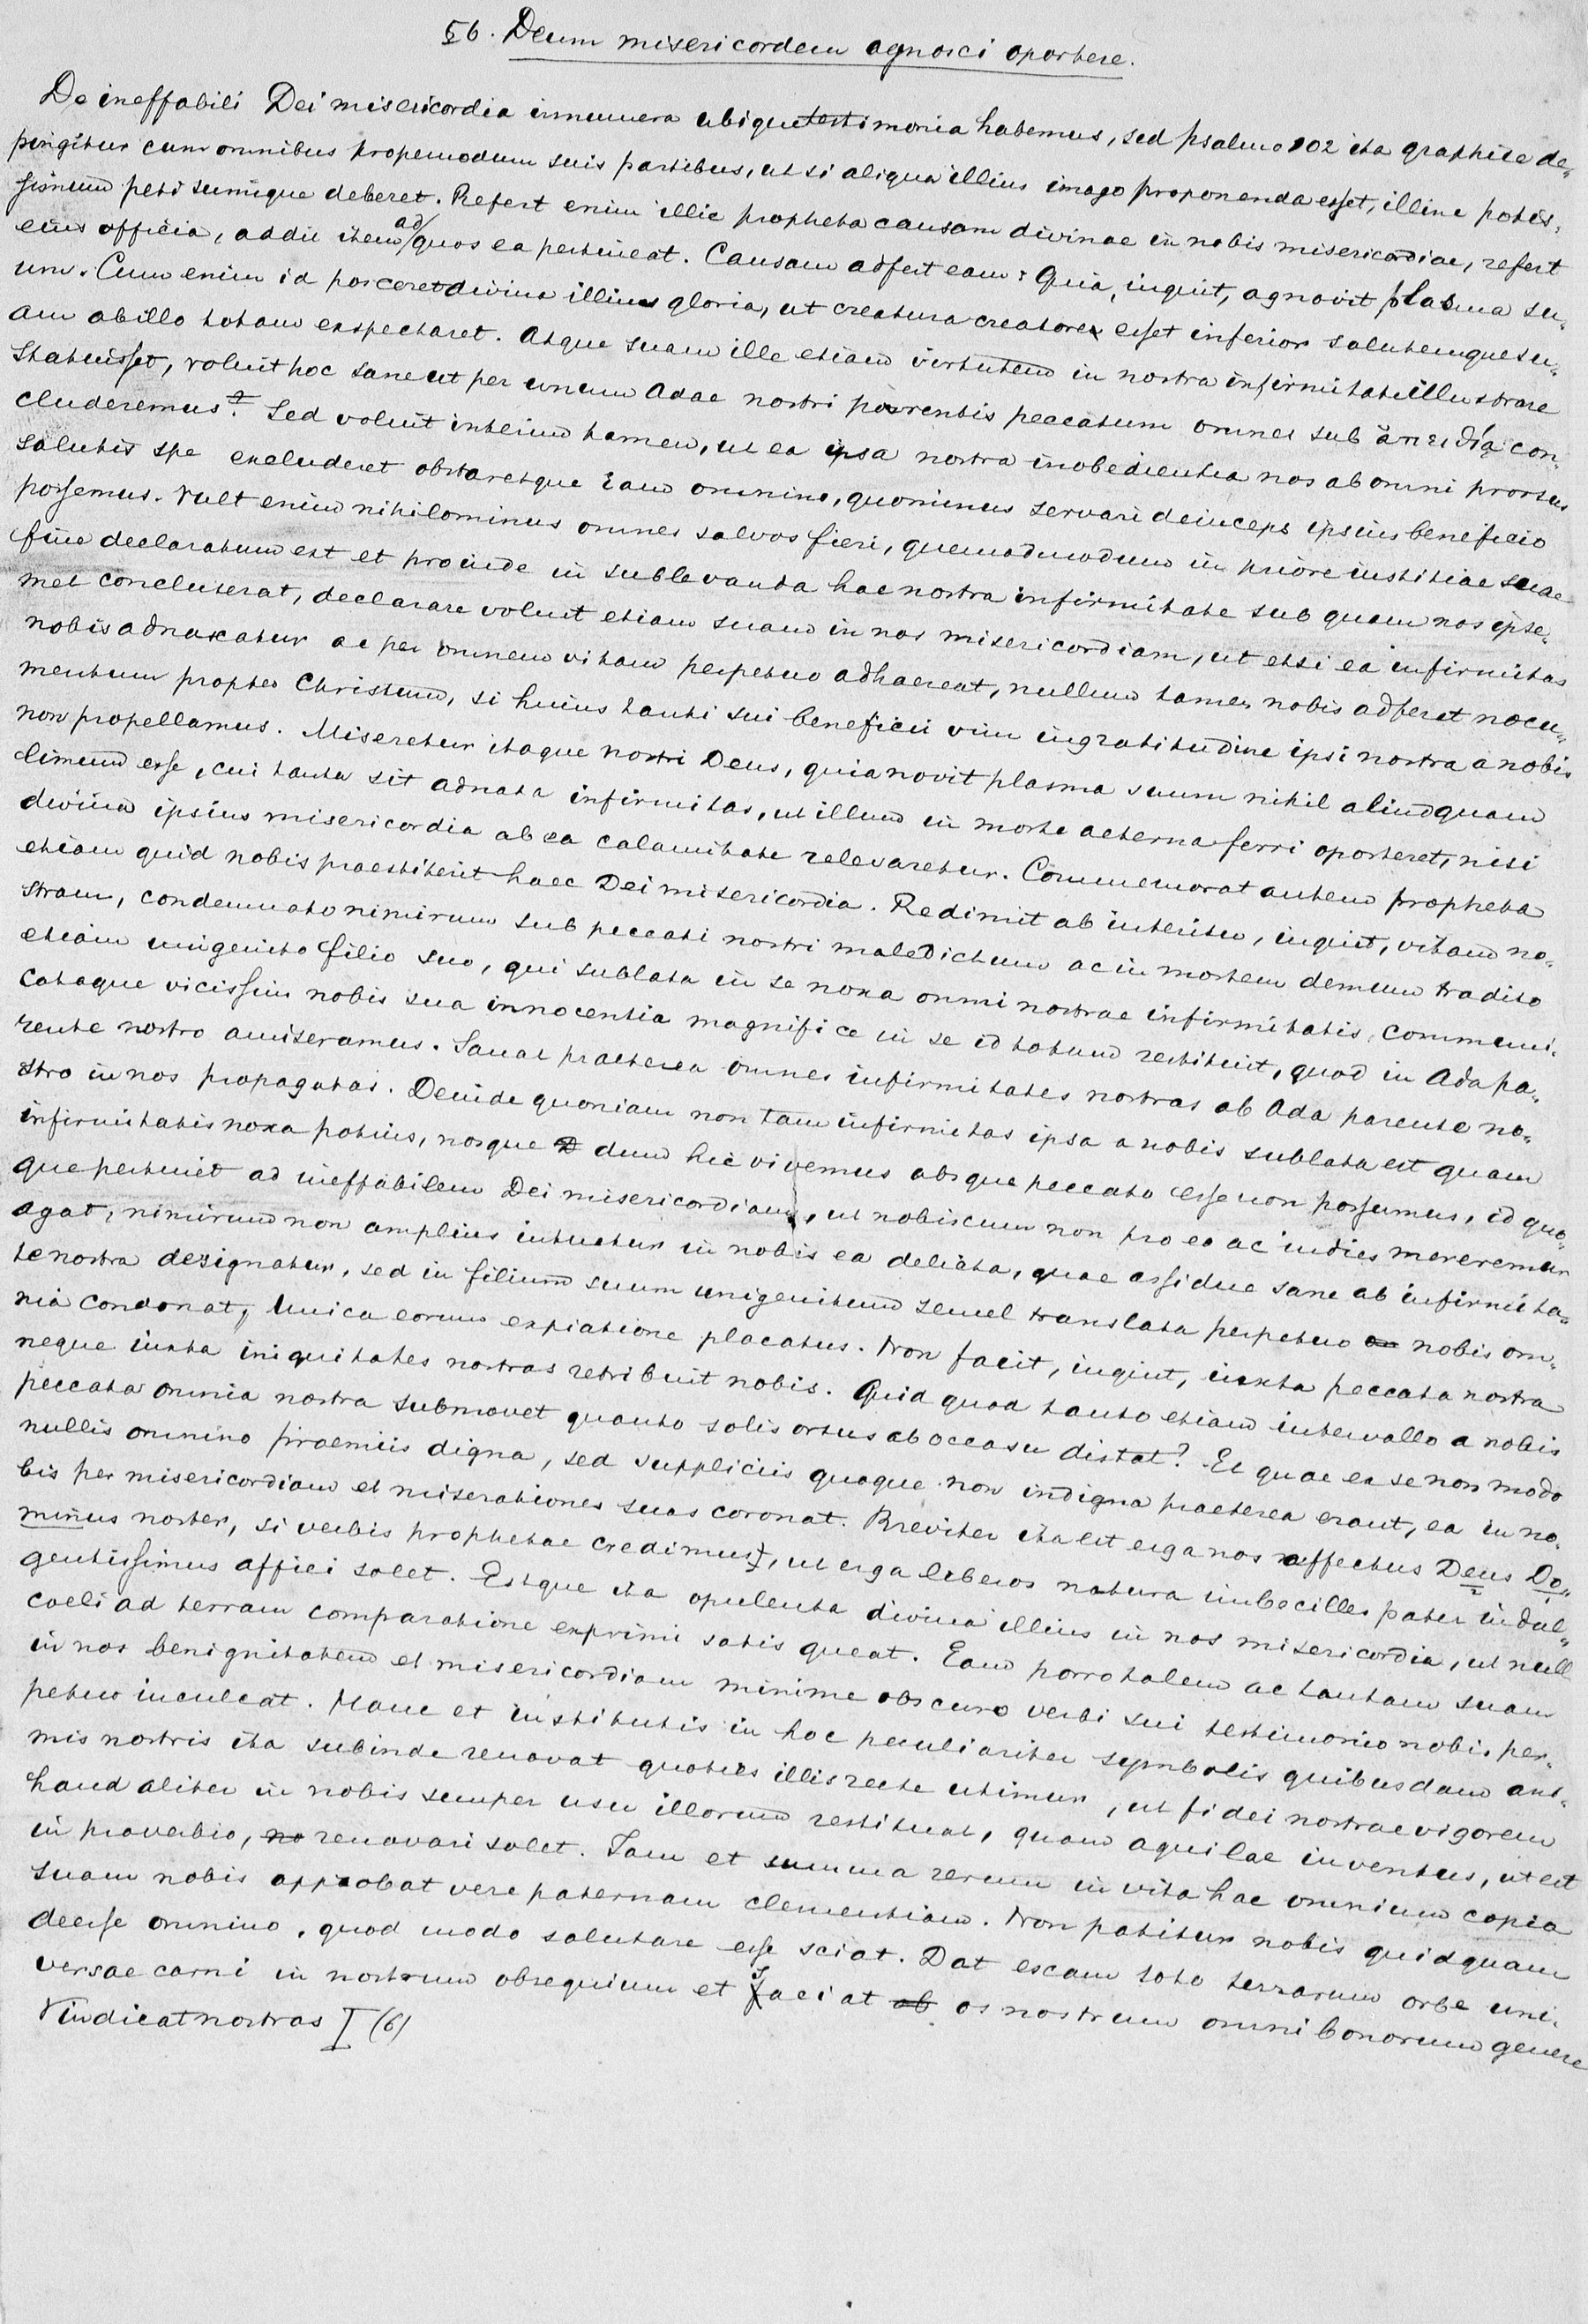 §6. Deum misericordem agnosci oportere.
De ineffabili Dei misericordia innumera ubique testimonia habemus, sed psalmo 102 ita graphice de-
pingitur cum omnibus propemodum suis partibus, ut si aliqua illius imago proponenda esset, illinc potis-
simum peti sumique deberet. Refert enim illic propheta causam divinae in nobis misericordiae, refert
eius officia, addit item ad quos ea pertineat. Causam adfert eam: Quia, inquit, agnovit plasma su-
um. Cum enim id posceret divina illius gloria, ut creatura creatore esset inferior salutemque su-
am ab illo totam exspectaret. Atque suam ille etiam virtutem in nostra infirmitate illustrare
statuisset, voluit hoc sane ut per unum Adae nostri parentis peccatum omnes sub ἀπειθίᾳ con-
cluderemur. Sed voluit interim tamen, ut ea ipsa nostra inobedientia nos ab omni prorsus
salutis spe excluderet obstaretque iam omnino, quominus servari deinceps ipsius beneficio
possemus. Vult enim nihilominus omnes salvos fieri, quemadmodum in priore iustitiae suae
fine declaratum est et proinde in sublevanda hac nostra infirmitate sub quam nos ipse-
met concluserat, declarare voluit etiam suam in nos misericordiam, ut etsi ea infirmitas
nobis adnascatur ac per omnem vitam perpetuo adhaereat, nullum tamen nobis adferat nocu-
mentum propter Christum, si huius tanti sui beneficii vim ingratitudine ipsi nostra a nobis
non propellamus. Miseretur itaque nostri Deus, quia novit plasma suum nihil aliud quam
limum esse, cui tanta sit adnata infirmitas, ut illum in morte aeterna ferri oporteret, nisi
divina ipsius misericordia ab ea calamitate relevaretur. Commemorat autem propheta
etiam quid nobis praestiterit haec Dei misericordia. Redimit ab interitu, inquit, vitam no-
stram, condemnato nimirum sub peccati nostri maledictum ac in mortem demum tradito
etiam unigenito filio suo, qui sublata in se noxa omni nostrae infirmitatis, communi-
cataque vicissim nobis sua innocentia magnifice in se id totum restituit, quod in Ada pa-
rente nostro amiseramus. Sanat praeterea omnes infirmitates nostras ab Ada parente no-
stro in nos propagatas. Deinde quoniam non tam infirmitas ipsa a nobis sublata est quam
infirmitatis noxa potius, nosque dum hic vivemus absque peccato esse non possumus, id quo-
que pertinet ad ineffabilem Dei misericordiam, ut nobiscum non pro eo ac indies mereremur
agat, nimirum non amplius intuetur in nobis ea delicta, quae assidue sane ab infirmita-
te nostra designatur, sed in filium suum unigenitum semel translata perpetuo nobis om-
nia condonat, unica eorum expiatione placatus. Non facit, inquit, iuxta peccata nostra
neque iuxta iniquitates nostras retribuit nobis. Quid quod tanto etiam intervallo a nobis
peccata omnia nostra submovet quanto solis ortus ab occasu distat? Et quae ex se non modo
nullis omnino praemiis digna, sed suppliciis quoque non indigna praeterea erant, ea in no-
bis per misericordiam et miserationes suas coronat. Breviter ita est erga nos affectus Deus Do-
minus noster, si verbis prophetae credimus, ut erga liberos natura imbecilles pater indul-
gentissimus affici solet. Estque ita opulenta divina illius in nos misericordia, ut null
caeli ad terram comparatione exprimi satis queat. Eam porro talem ac tantam suam
in nos benignitatem et misericordiam minime obscuro verbi sui testimonio nobis per-
petuo inculcat. Hanc et institutis in hoc peculiariter symbolis quibusdam ani-
mis nostris ita subinde renovat quoties illis recte utimur, ut fidei nostrae vigorem
haud aliter in nobis semper usu illorum restituat, quam aquilae iuventus, ut est
in proverbio, renovari solet. Iam et summa rerum in vita hac omnium copia
suam nobis approbat vere paternam clementiam. Non patitur nobis quidquam
deesse omnino, quod modo salutare esse sciat. Dat escam toto terrarum orbe uni-
versae carni in nostrum obsequium et saciat os nostrum omni bonorum genere
Vindicat nostras I (6)